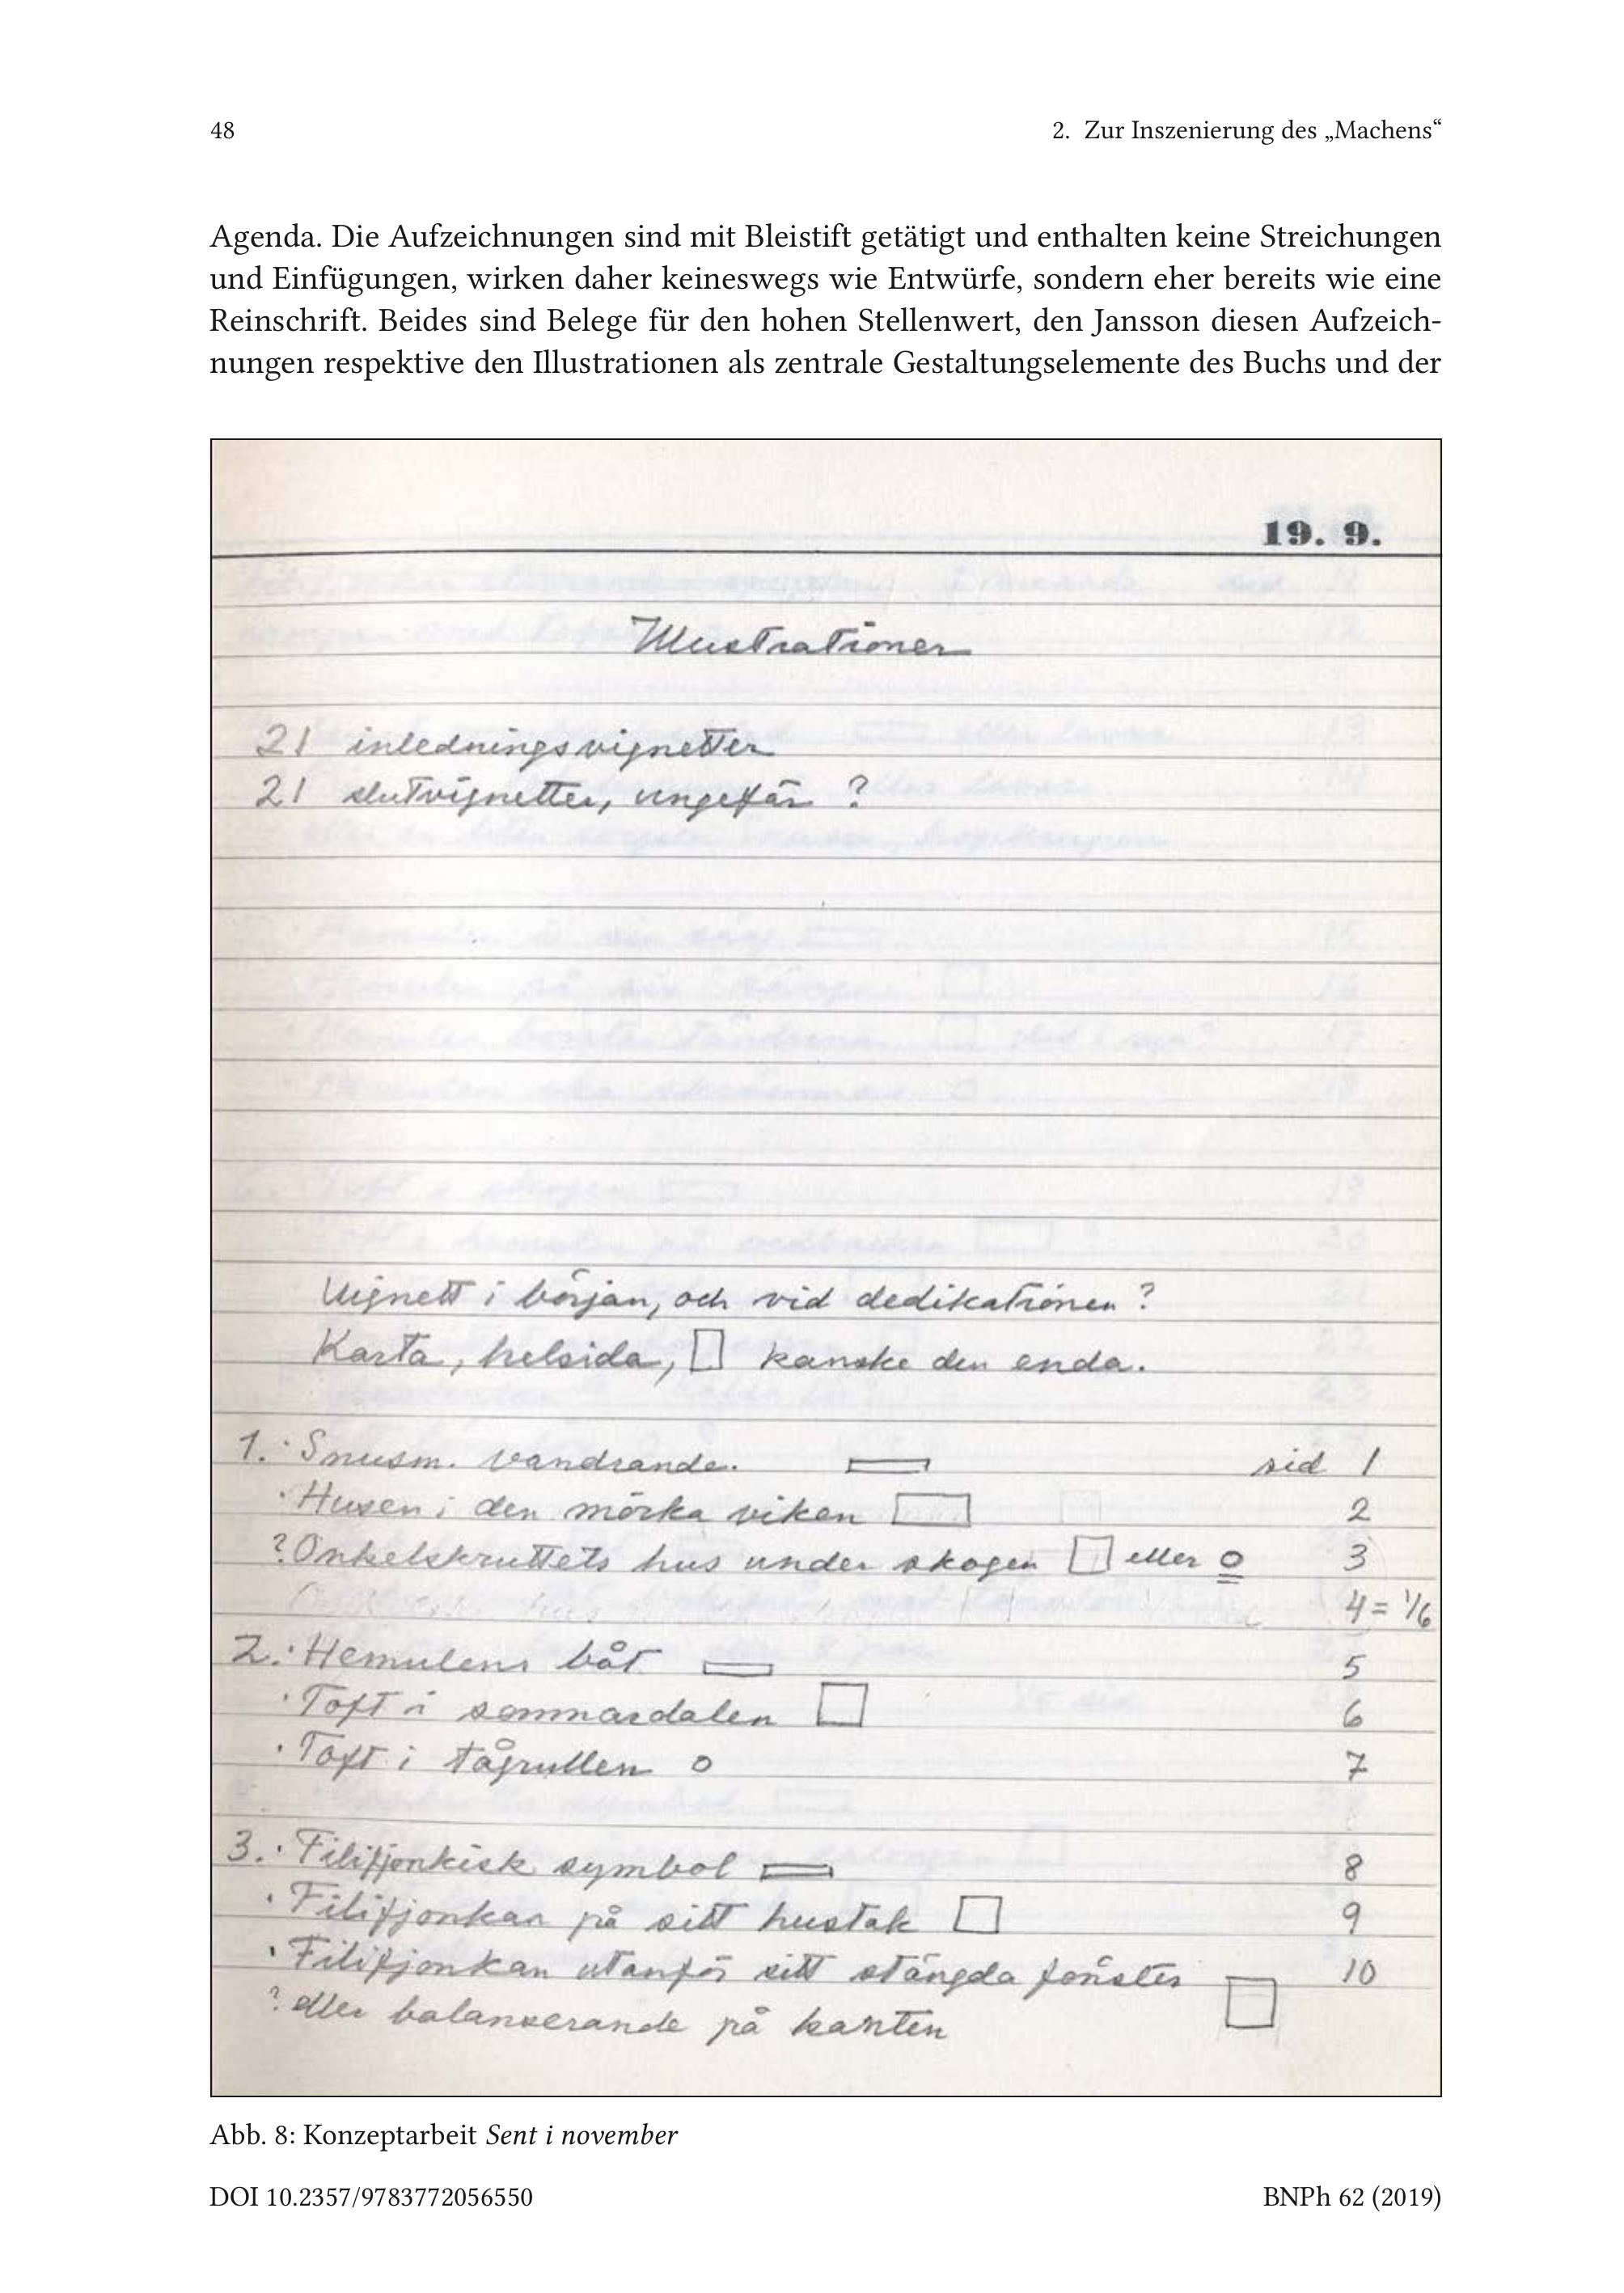 48
2. Zur Inszenierung des „Machens“
Agenda. Die Aufzeichnungen sind mit Bleistift getätigt und enthalten keine Streichungen
und Einfügungen, wirken daher keineswegs wie Entwürfe, sondern eher bereits wie eine
Reinschrift. Beides sind Belege für den hohen Stellenwert, den Jansson diesen Aufzeich-
nungen respektive den Illustrationen als zentrale Gestaltungselemente des Buchs und der
19. 9.
Illustrationer
21 inledningsvignetter
21 slutvignetter, ungefär ?
Vignett i början, och vid dedikationen ?
Karta, helsida, kanske den enda.
1. · Snusm. vandrande. sid 1
· Husen i den mörka viken 2
? Onkelskruttets hus under skogen eller o 3
4 = 1/6
2. · Hemulens båt 5
· Toft i sommardalen 6
· Toft i tågrullen o 7
3. · Filifjonkisk symbol 8
· Filifjonkan på sitt hustak 9
· Filifjonkan utanför sitt stängda fönster 10
? eller balanserande på kanten
Abb. 8: Konzeptarbeit Sent i november
DOI 10.2357/9783772056550
BNPh 62 (2019)